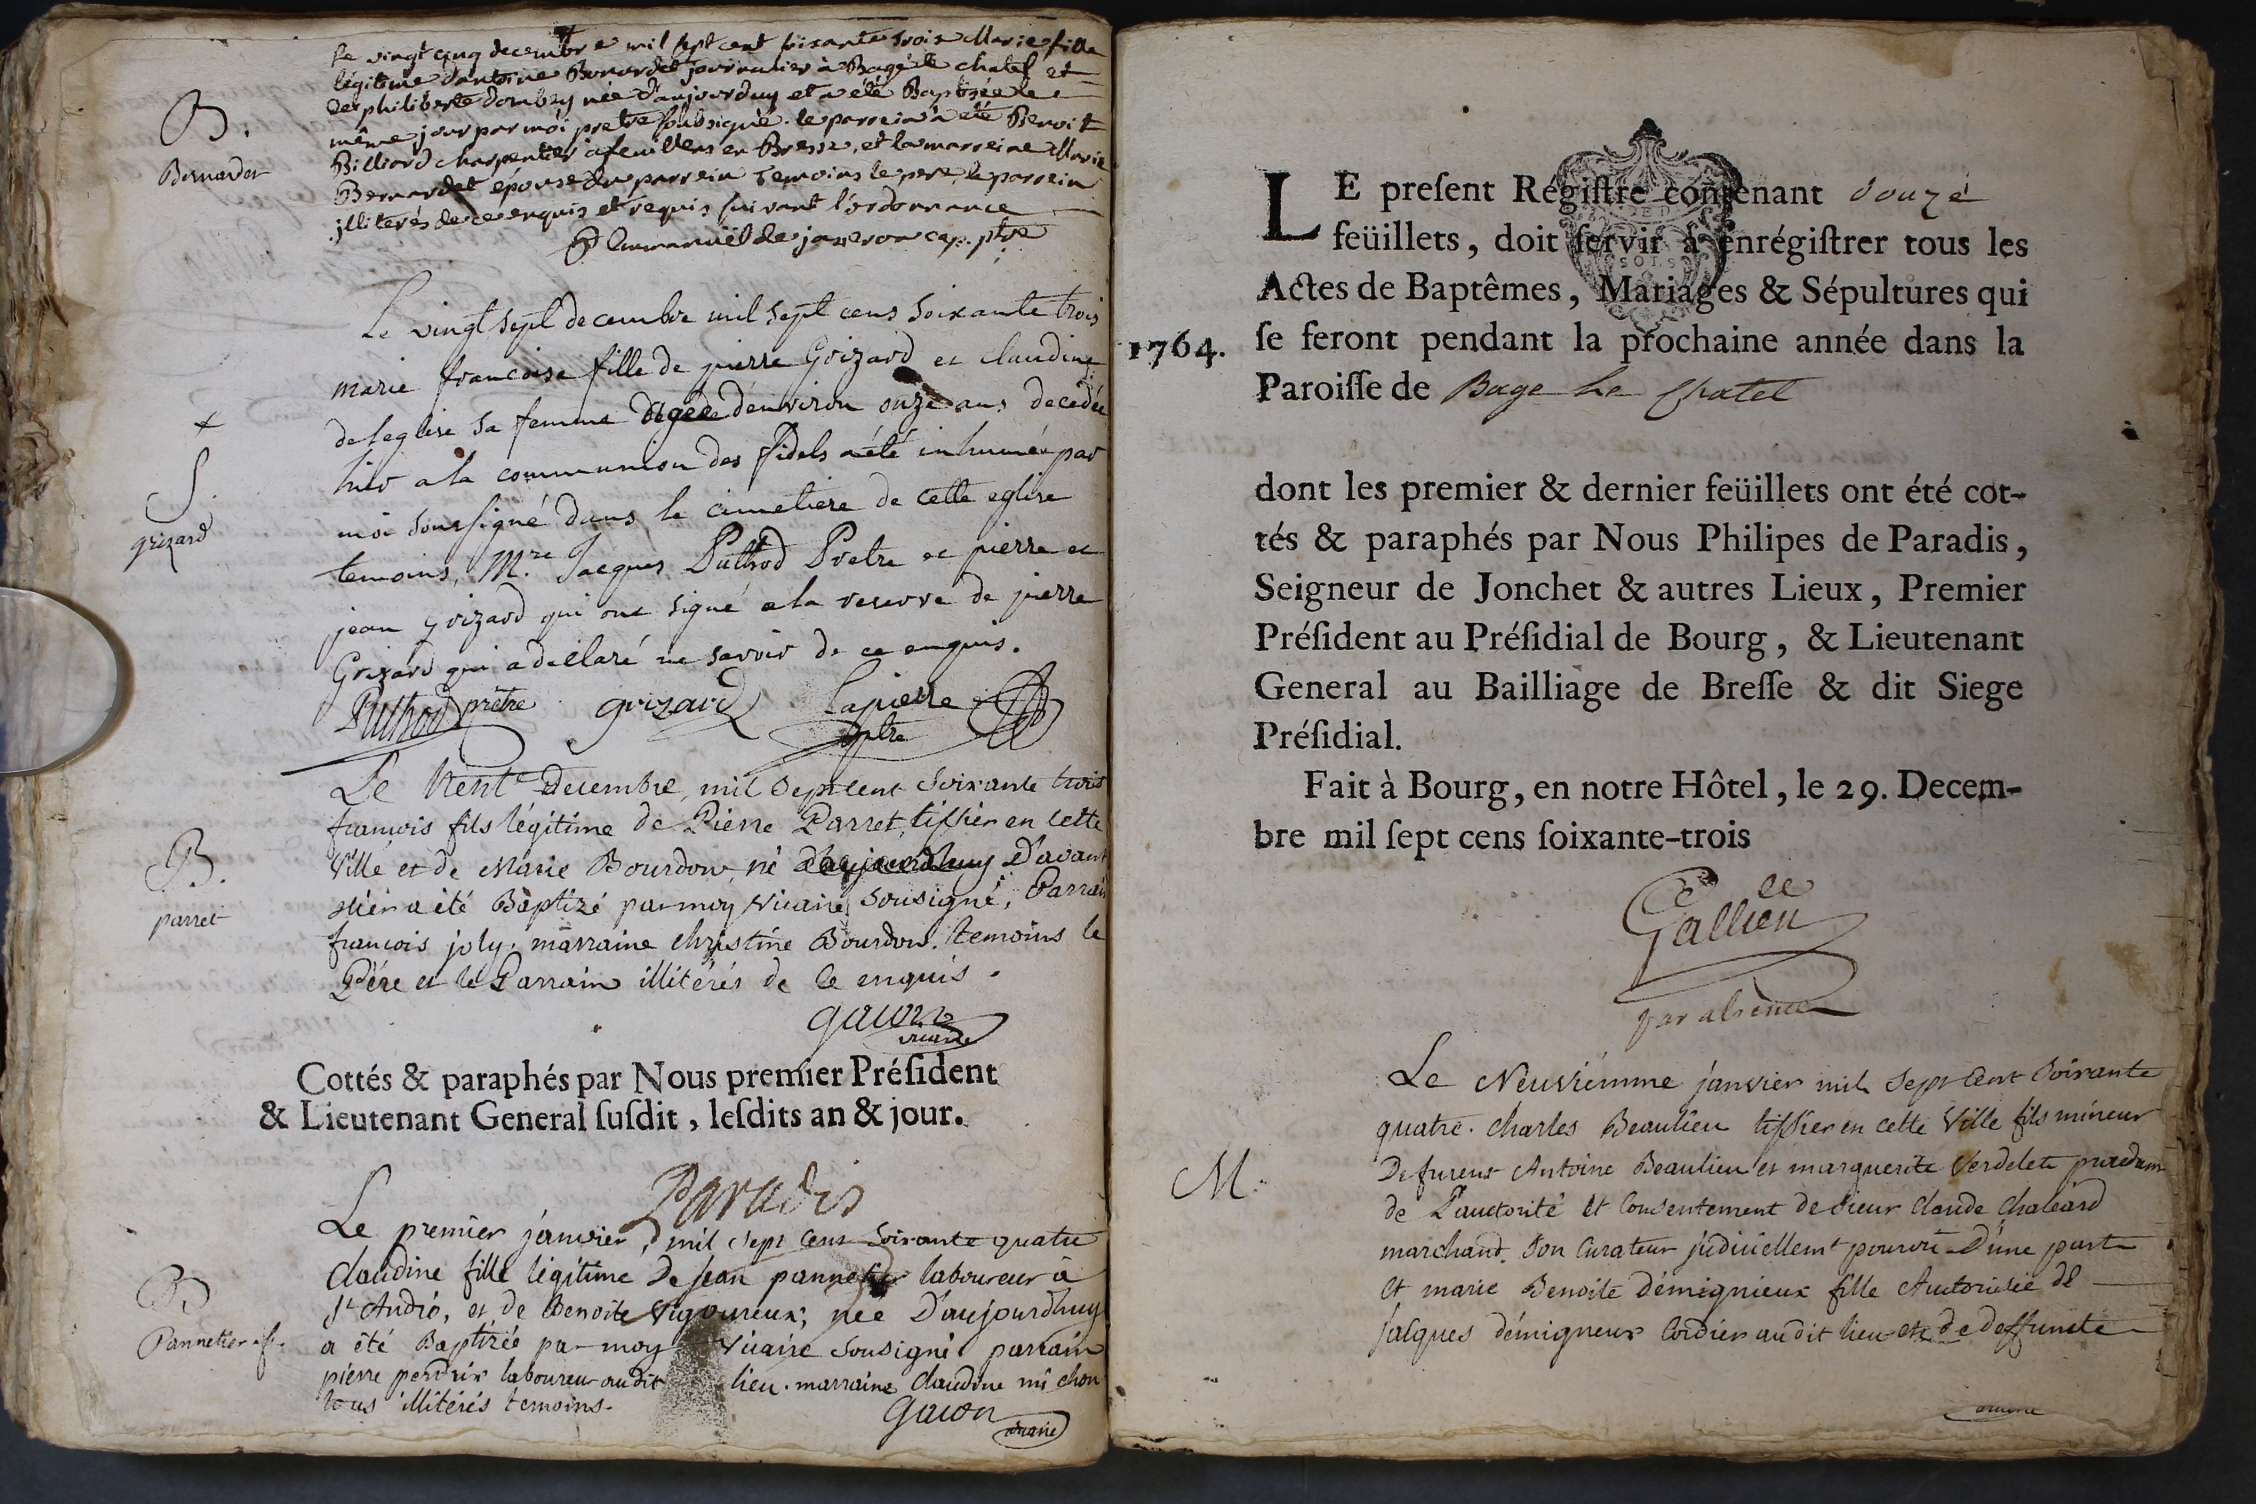 le vingt cinq decembre mil sept cent soixante trois Marie fille
légitime d'antoine Bernardet journalier à Bagé le chatel et
de philiberte dombey née d'aujourduy et a été Baptisée le
même jour par moi pretre soussigné. le parrein a été Benoit
B.
Billiard charpentier à feuillens en Bresse, et la marreine Marie
Bernardet
Bernardet épouse du parrein temoins le pere, le parrein
illiterés de ce enquis et requis suivant l'ordonnance
f. Emmanuël de jasseron cap. ptre
Le vingt sept decembre mil sept cens soixante trois
marie francoise fille de pierre Grizard et claudine
deleglise sa femme agée d'environ onze ans decedée
+
hier a la communion des fidels a été inhumée par
S.
moi soussigné dans le cimetiere de cette eglise
grizard
temoins, M.re Jacques Puthod Pretre et pierre et
jean grizard qui ont signé a la reserve de pierre
Grizard qui a declaré ne savoir de ce enquis.
Puthod prêtre grizard Lapierre
ptre
Le trente Decembre, mil Sept cent Soixante trois
francois fils légitime de Pierre Parret, tissier en cette
Ville et de Marie Bourdon, né d'aujourdhuy D'avant
B.
hier a été Baptizé par moy Vicaire Sousigné, Parrain
parret
francois joly. marraine christine Bourdon. temoins le
Pére et le Parrain illitérés de ce enquis.
gauon
vicaire
Cottés & paraphés par Nous premier Préſident
& Lieutenant General ſuſdit, leſdits an & jour.
Paradis
Le premier janvier, mil Sept cent Soixante quatre
Claudine fille légitime De jean pannetier laboureur à
B
St André, et de Benoite Vigoureux; née D'aujourdhuy
Pannetier
a été Baptizée par moy Vicaire Sousigné parrain
pierre perdrix laboureur audit lieu. marraine Claudine michon
tous illitérés temoins.
gauon
vicaire
LE preſent Régiſtre contenant douze
feüillets, doit ſervir à enrégiſtrer tous les
Actes de Baptêmes, Mariages & Sépultures qui
1764.
ſe feront pendant la prochaine année dans la
Paroiſſe de Bage Le Chatel
dont les premier & dernier feüillets ont été cot-
tés & paraphés par Nous Philipes de Paradis,
Seigneur de Jonchet & autres Lieux, Premier
Préſident au Préſidial de Bourg, & Lieutenant
General au Bailliage de Breſſe & dit Siege
Préſidial.
Fait à Bourg, en notre Hôtel, le 29. Decem-
bre mil ſept cens ſoixante-trois
Gallien
par absence
Le Neuviémme janvier mil Sept Cent Soixante
quatre. Charles Beaulieu tissier en cette Ville fils mineur
De furent Antoine Beaulieu et marguerite Verdelet procedant
M.
de L'auctorité et Consentement de Sieur Claude Chaleard
marchand. Son Curateur judiciellemt pourvu D'une part
Et marie Benoite démignieux fille Autorisée de
jacques démigneux Cordier audit lieu et de deffuncte